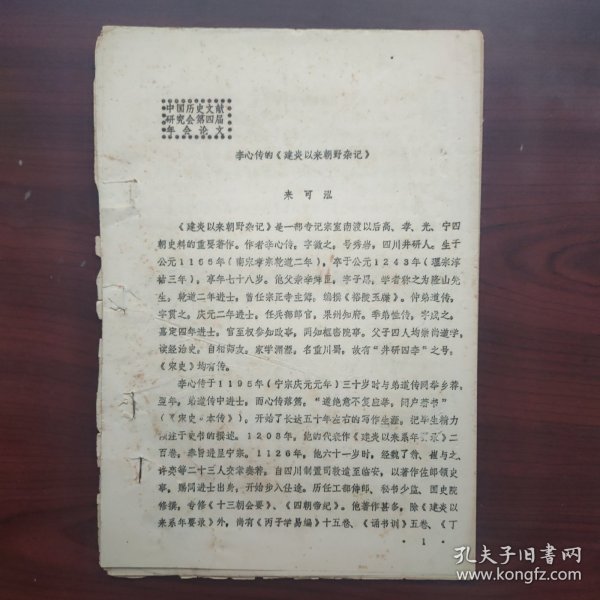 中国历史文献
研究会第四届
年会论文
李心传的《建炎以来朝野杂记》
来可泓
《建炎以来朝野杂记》是一部专记宋室南渡以后高、孝、光、宁四
朝史料的重要著作。作者李心传，字微之，号秀岩，四川井研人。生于
公元1166年（南宋孝宗乾道二年），卒于公元1243年（理宗淳
祐三年），享年七十八岁。他父亲李舜臣，字子思，学者称之为隆山先
生，乾道二年进士，曾任宗正寺主簿，编撰《裕陵玉牒》。仲弟道传，
字贯之。庆元二年进士。任兵部郎官，果州知府。季弟性传，字成之，
嘉定四年进士。官至权参知政事，同知枢密院事。父子四人均崇尚道学，
读经治史，自相师友。家学渊源，名重川蜀，故有“井研四李”之号。
《宋史》均有传。
李心传于1195年（宁宗庆元元年）三十岁时与弟道传同举乡荐，
翌年，弟道传中进士，而心传落第。“遂绝意不复应举，闭户著书”
（《宋史·本传》），开始了长达五十年左右的写作生涯，把毕生精力
倾注于史书的撰述。1208年，他的代表作《建炎以来系年要录》二
百卷，奉旨进呈宁宗。1126年，他六十一岁时，经魏了翁、崔与之、
许奕等二十三人交章奏荐。自四川制置司敦遣至临安，以著作佐郎领史
事，赐同进士出身，开始步入仕途。历任工部侍郎、秘书少监、国史院
修撰，专修《十三朝会要》、《四朝帝纪》。他著作甚多，除《建炎以
来系年要录》外，尚有《丙子学易编》十五卷、《诵书训》五卷、《丁
·1·
孔夫子旧书网
www.kongfz.com